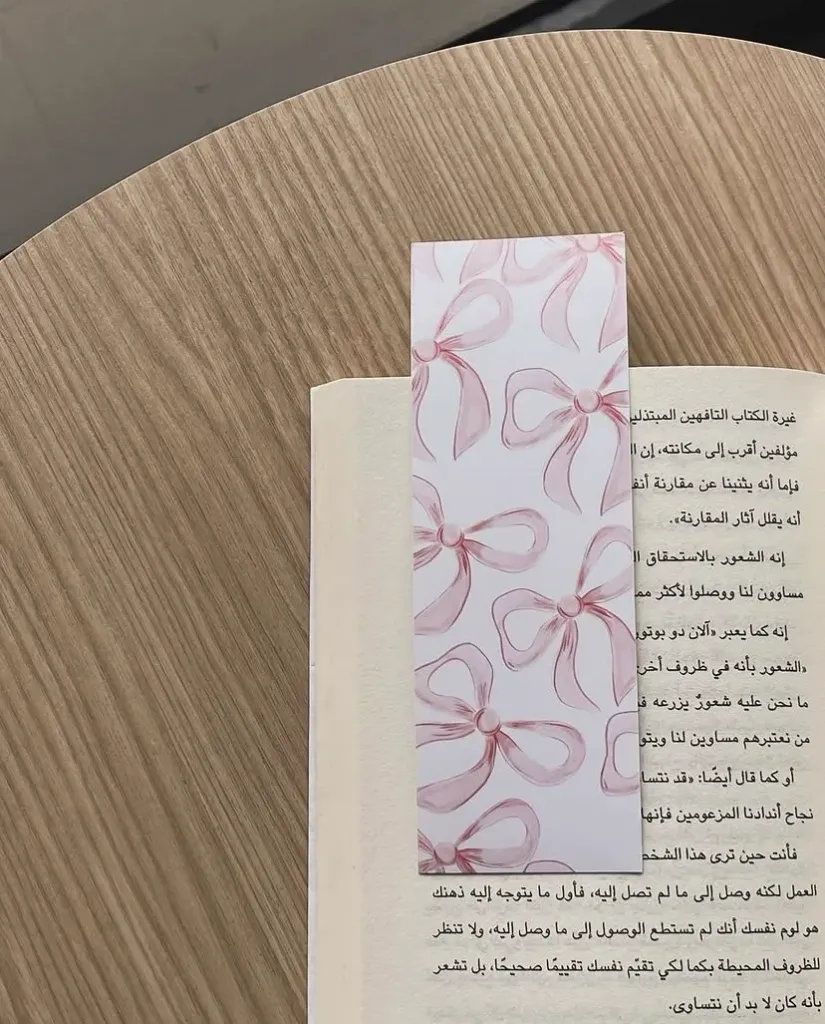 غيرة الكتاب التافهين المبتذلين
مؤلفين أقرب إلى مكانته، إن
فإما أنه يثنينا عن مقارنة
أنه يقلل آثار المقارنة».
إنه الشعور بالاستحقاق
مساوون لنا ووصلوا لأكثر
إنه كما يعبر «آلان دو بوتون
«الشعور بأنه في ظروف
ما نحن عليه شعورٌ يزرعه
من نعتبرهم مساوين لنا
أو كما قال أيضًا: «قد
نجاح أندادنا المزعومين
فأنت حين ترى هذا
العمل لكنه وصل إلى ما لم تصل إليه، فأول ما يتوجه إليه ذهنك
هو لوم نفسك أنك لم تستطع الوصول إلى ما وصل إليه، ولا تنظر
للظروف المحيطة بكما لكي تقيّم نفسك تقييمًا صحيحًا، بل تشعر
بأنه كان لا بد أن نتساوى.